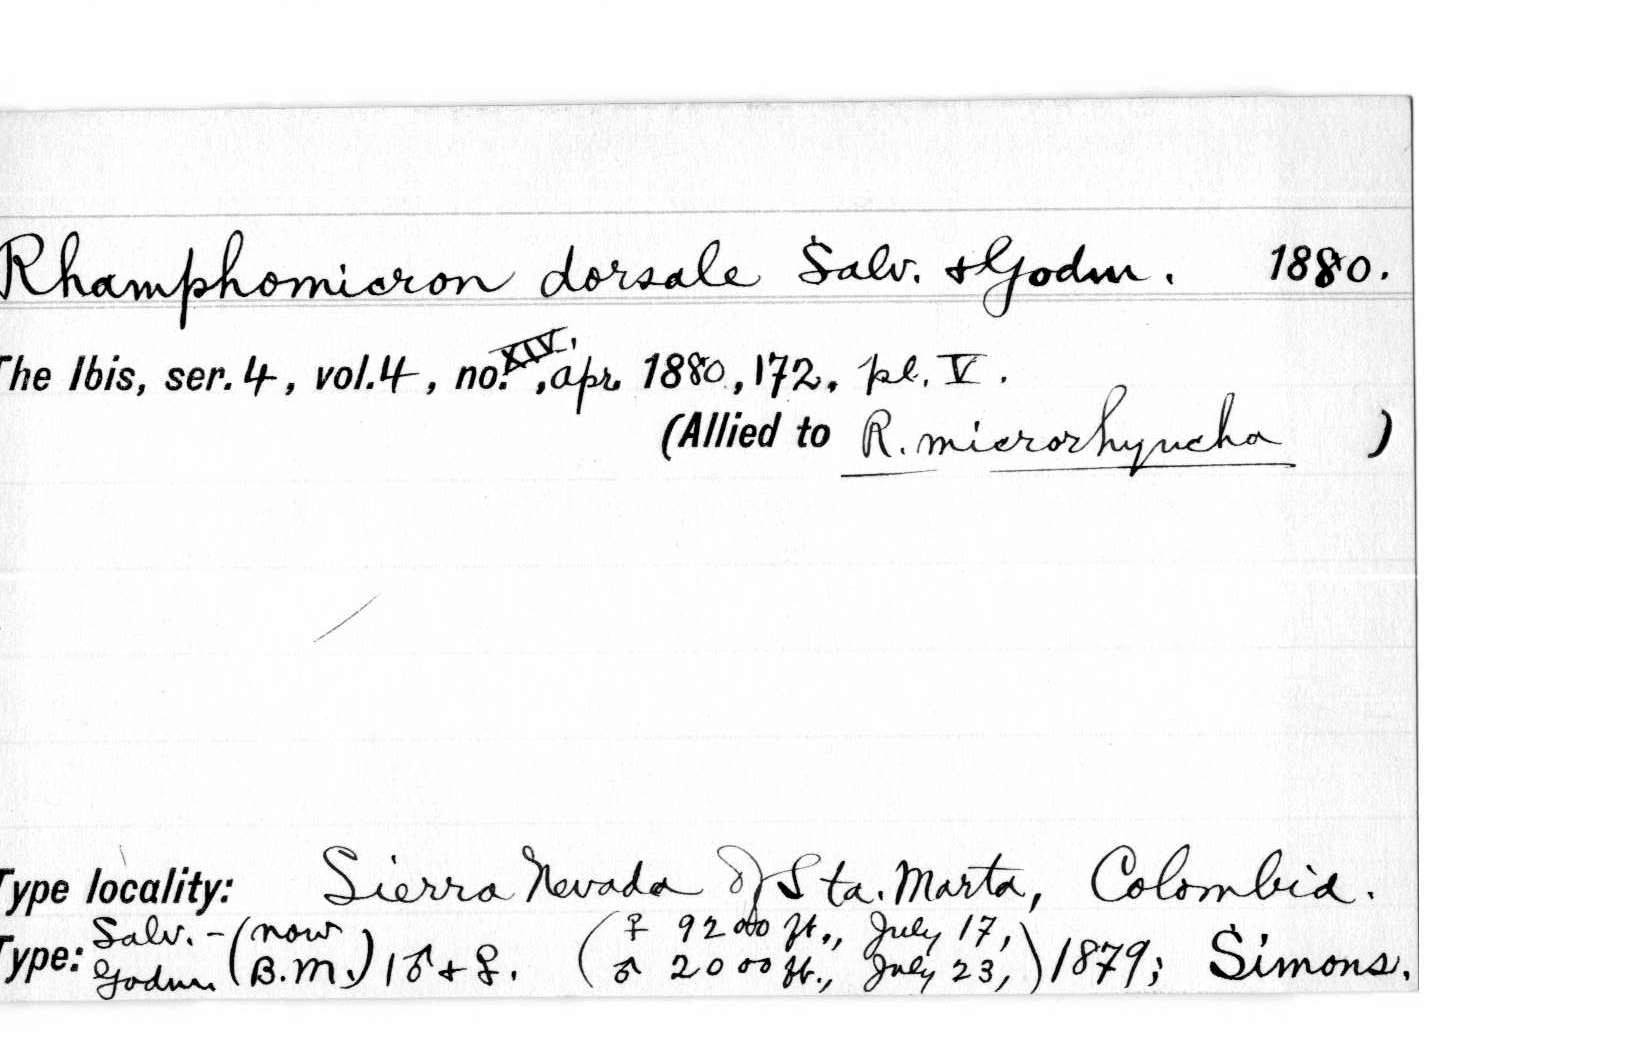 Rhamphomicron dorsale Salv. & Godm. 1880.
The Ibis, ser. 4, vol. 4, no. XIV., apr. 1880, 172, pl. V.
(Allied to R. microrhyncha )
Type locality: Sierra Nevada of Sta. Marta, Colombia.
Type: Salv.-Godm. (now B.M.) 1 ♂ + ♀. (♀ 9200 ft., July 17, ♂ 2000 ft., July 23,) 1879; Simons.